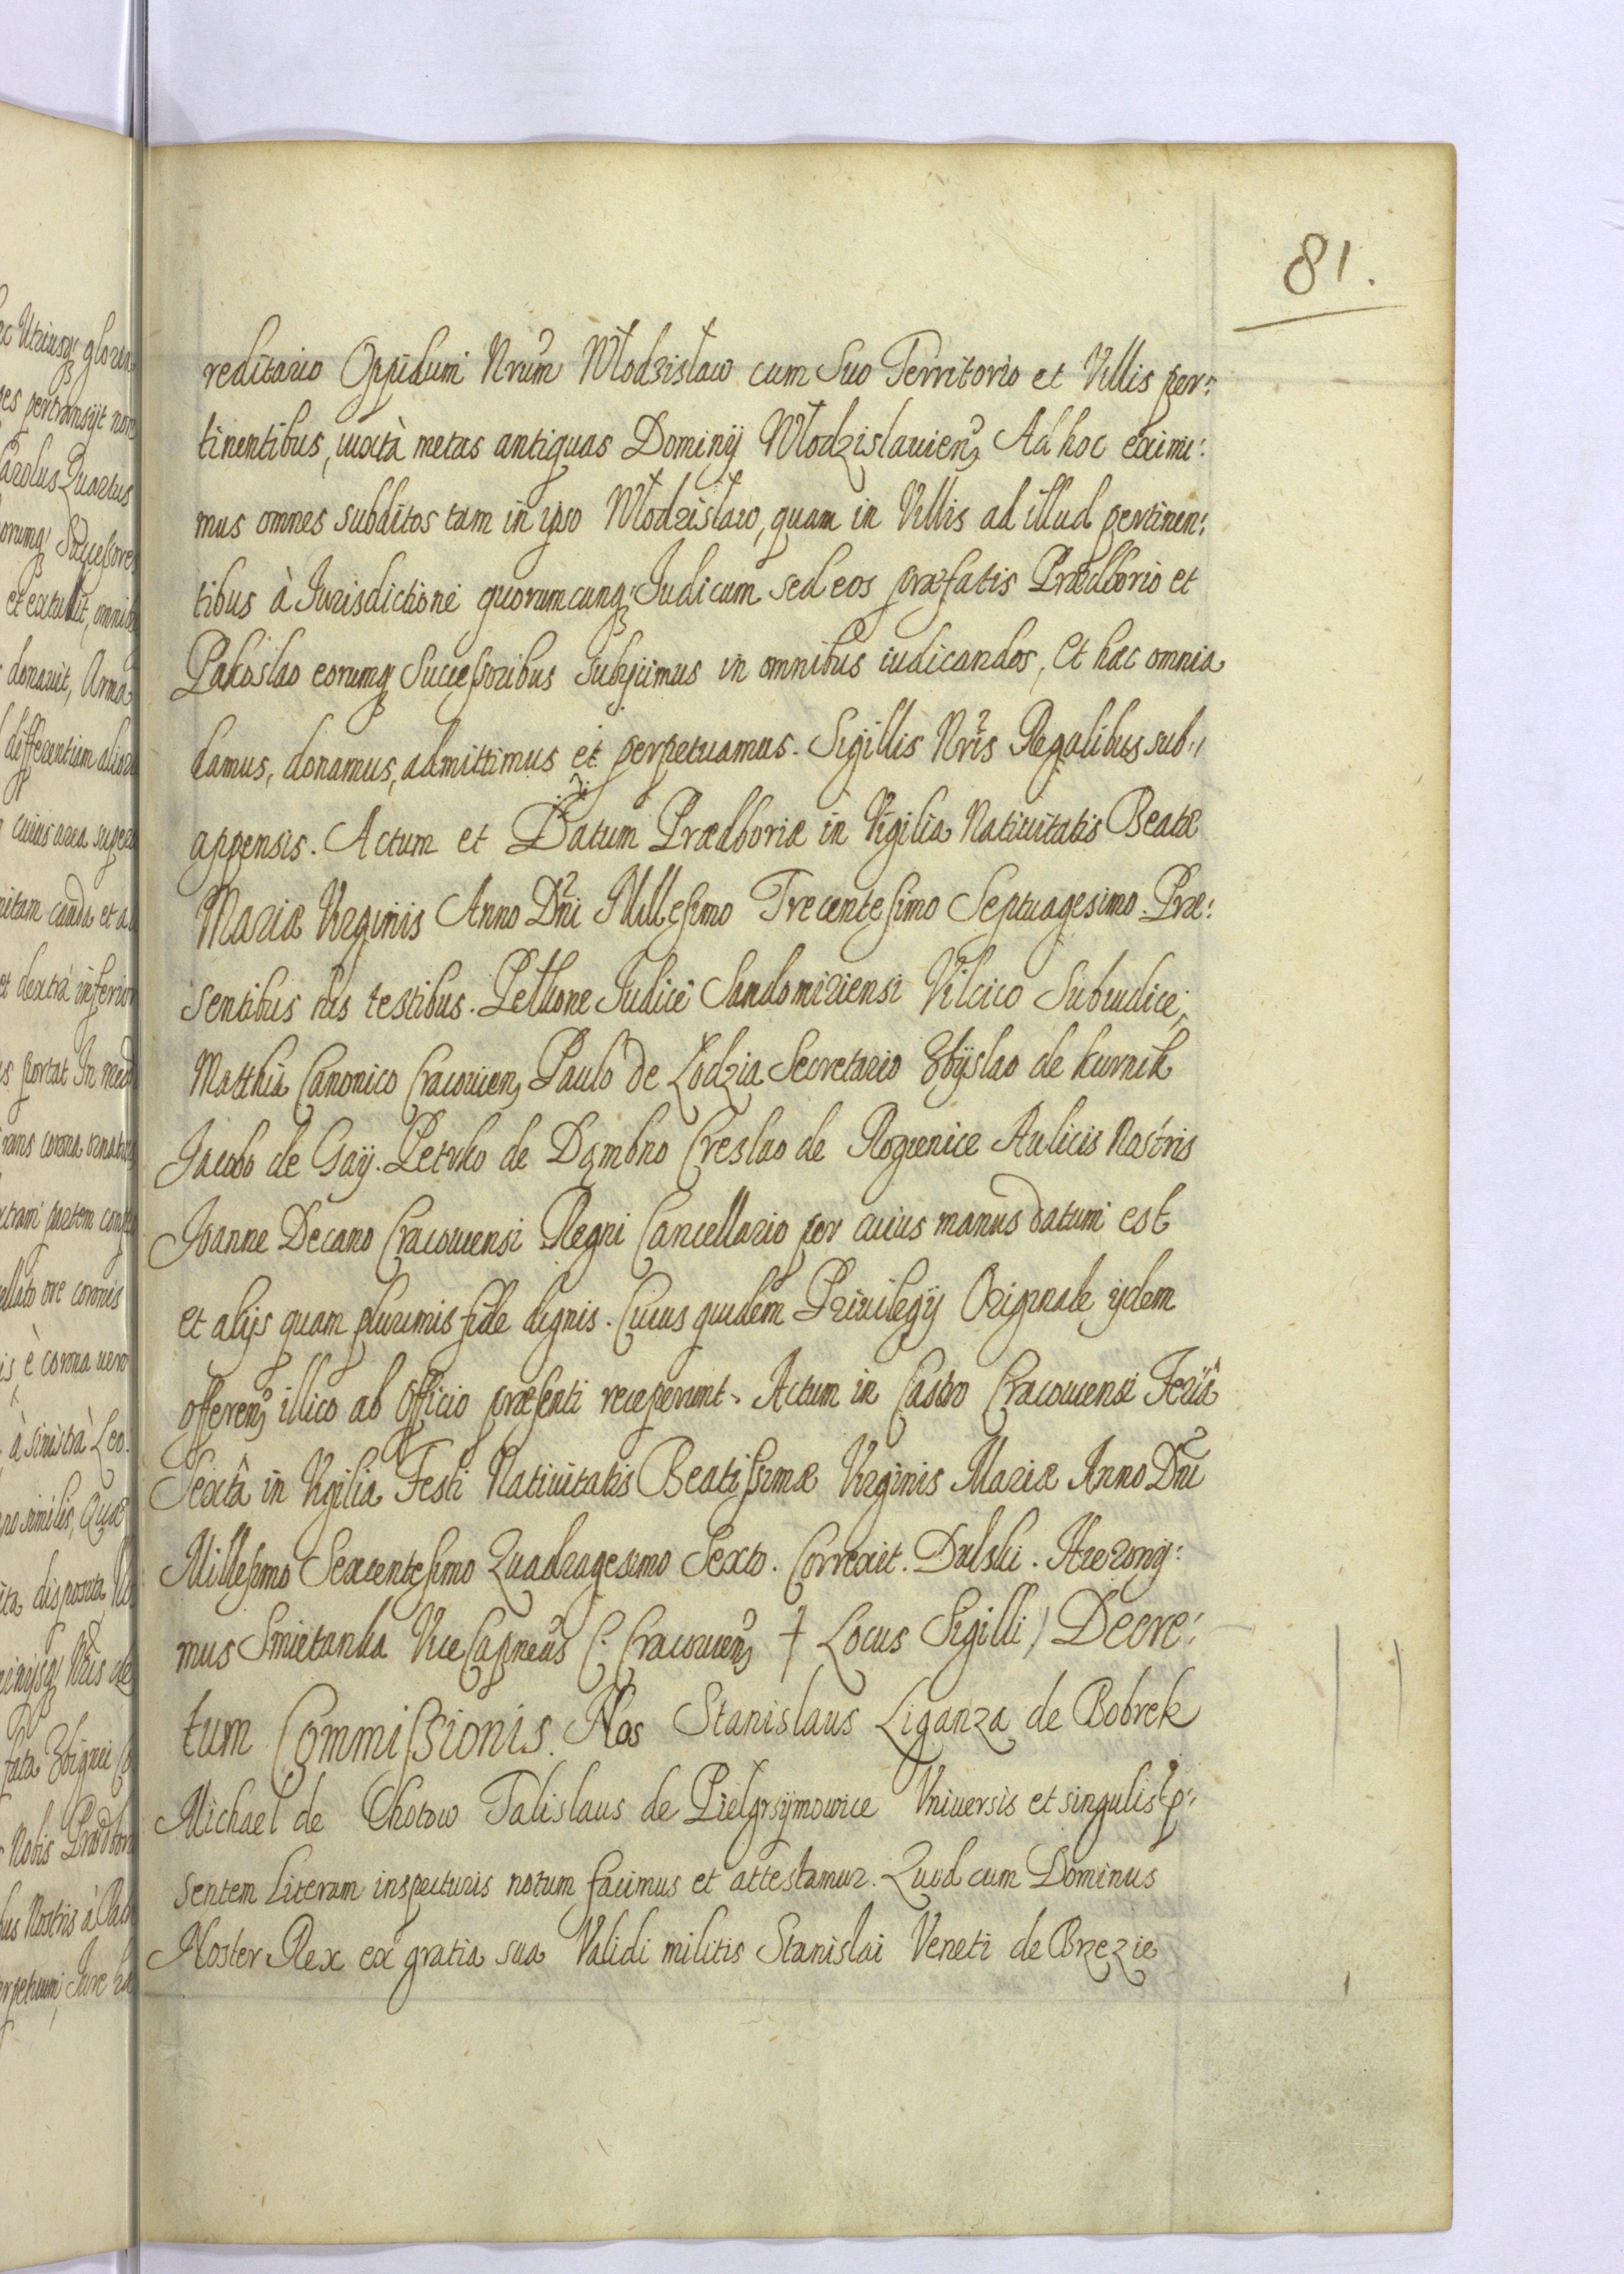 81.
reditario Oppidum Nrum Włodzisław cum Suo Territorio et Villis per:
tinentibus, iuxtà metas antiquas Dominÿ Włodzislauien, Ad hoc eximi:
mus omnes subditos tam in ipso Włodzisław, quam in Villis ad illud pertinen:
tibus à Jurisdictione quorumcunq; Judicum sed eos præfatis Prædborio et
Pakoslao eorumq; Successoribus subijcimus in omnibus iudicandos, Et hæc omnia
damus, donamus, admittimus et perpetuamus. Sigillis Nris Regalibus sub:
appensis. Actum et Datum Prædboriæ in Vigilia Natiuitatis Beatæ
Mariæ Virginis Anno Dni Millesimo Trecentesimo Septuagesimo. Præ:
sentibus his testibus. Pethone Judice Sandomiriensi Vilcico Subiudice,
Matthia Canonico Cracouien, Paulo de Lodzia Secretario Zbÿslao de Kurnik
Jacobo de Gaÿ. Petrko de Dąmbno Creslao de Rogienice Aulicis Nostris
Joanne Decano Cracouiensi Regni Cancellario per cuius manus datum est
et alijs quam plurimis fide dignis. Cuius quidem Priuilegÿ Originale ÿdem
offeren, illico ab Officio præsenti receperunt. Actum in Castro Cracouiensi Feriâ
Sextâ in Vigilia Festi Natiuitatis Beatissimæ Virginis Mariæ Anno Dni
Millesimo Sexcentesimo Quadragesimo Sexto. Correxit. Dulski.
mus Smietanka Vice Capneus C. Cracouien, Locus Sigilli) Decre:
tum Commissionis. Nos Stanislaus Liganza de Bobrek
Michael de Chotow Falislaus de Pielgrzÿmowice Vniuersis et singulis p:
sentem Literam inspecturis notum facimus et attestamur. Quod cum Dominus
Noster Rex ex gratia sua Validi militis Stanislai Veneti de Brzezie